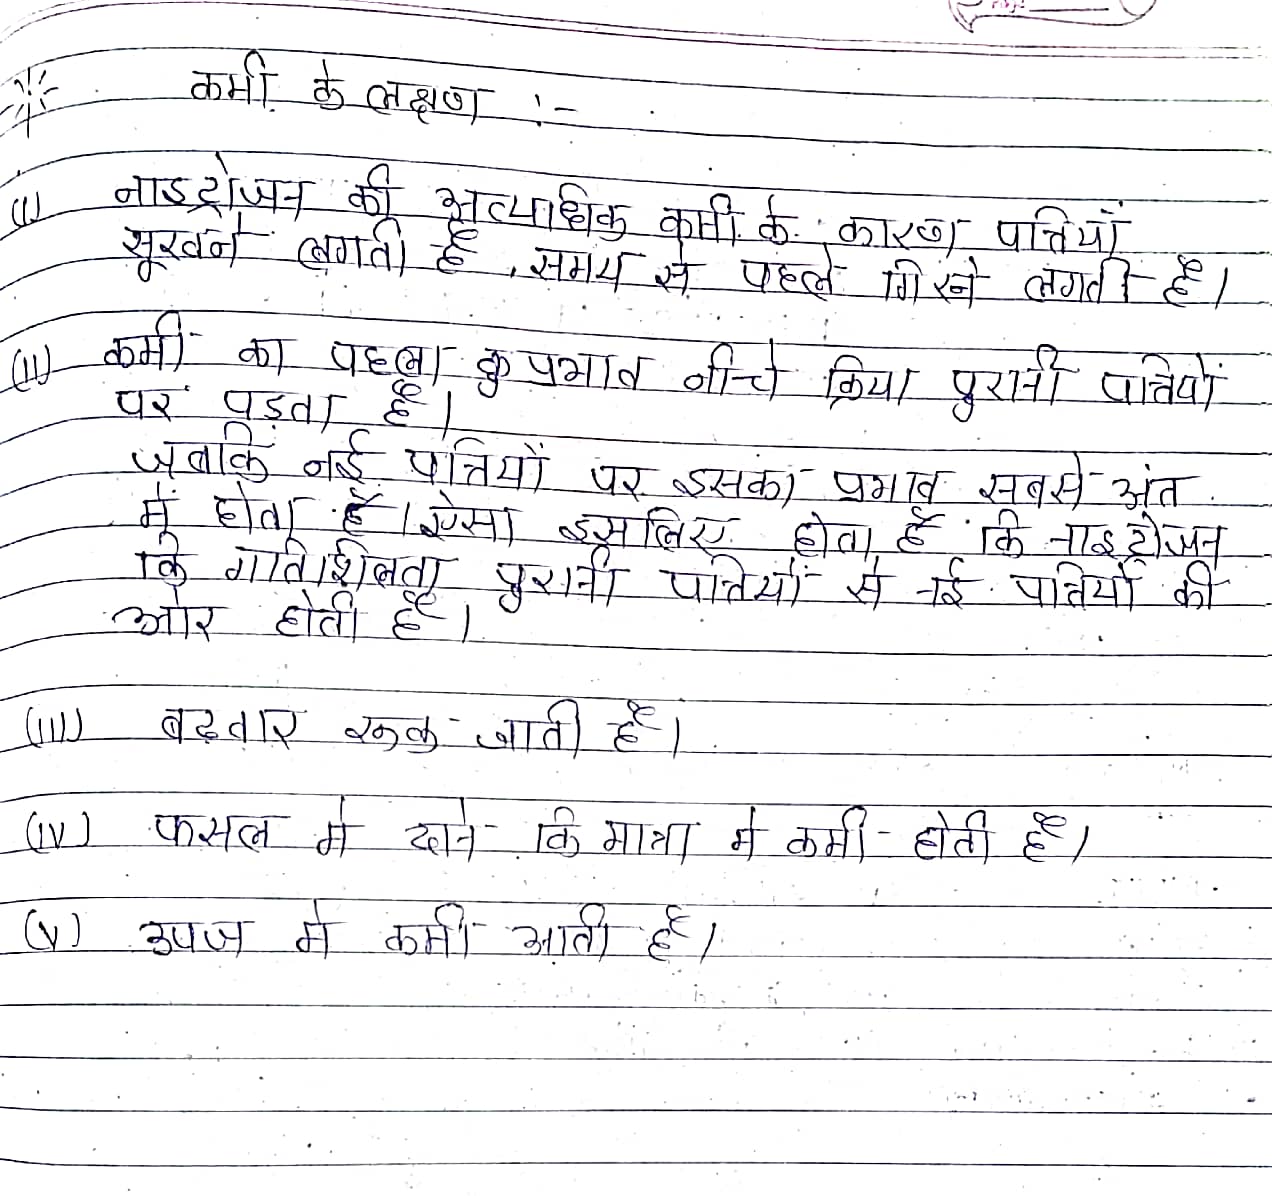 कमी के लक्षण :-
(I) नाइट्रोजन की अत्याधिक कमी के कारण पत्तियाँ
सूखने लगती है, समय से पहले गिरने लगती है।
(II) कमी का पहला कुप्रभाव नीचे क्रिया पुरानी पत्तियों
पर पड़ता है।
जबकि नई पत्तियों पर इसका प्रभाव सबसे अंत
में होता है। ऐसा इसलिए होता है कि नाइट्रोजन
कि गातिशिलता पुरानी पत्तियों से नई पत्तियों की
ओर होती है।
(III) बढ़वार रूक जाती है।
(IV) फसल मे दाने कि मात्रा मे कमी होती है।
(V) उपज मे कमी आती है।